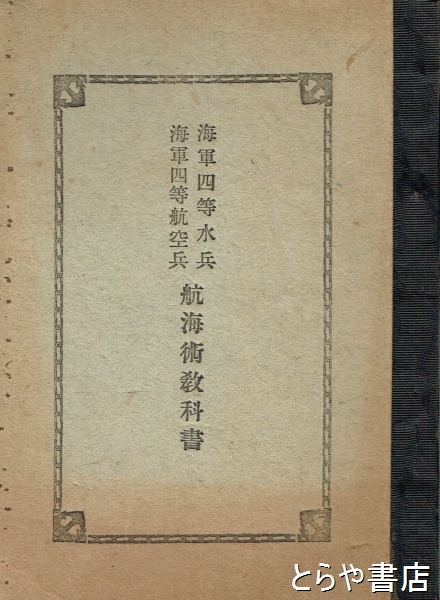 海軍四等水兵
海軍四等航空兵
航海術敎科書
とらや書店